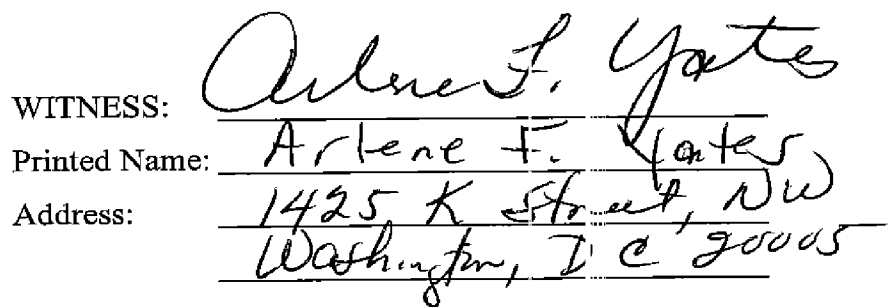 WITNESS: Arlene F. Yates
Printed Name: Arlene F. Yates
Address: 1425 K Street, NW
Washington, DC 20005